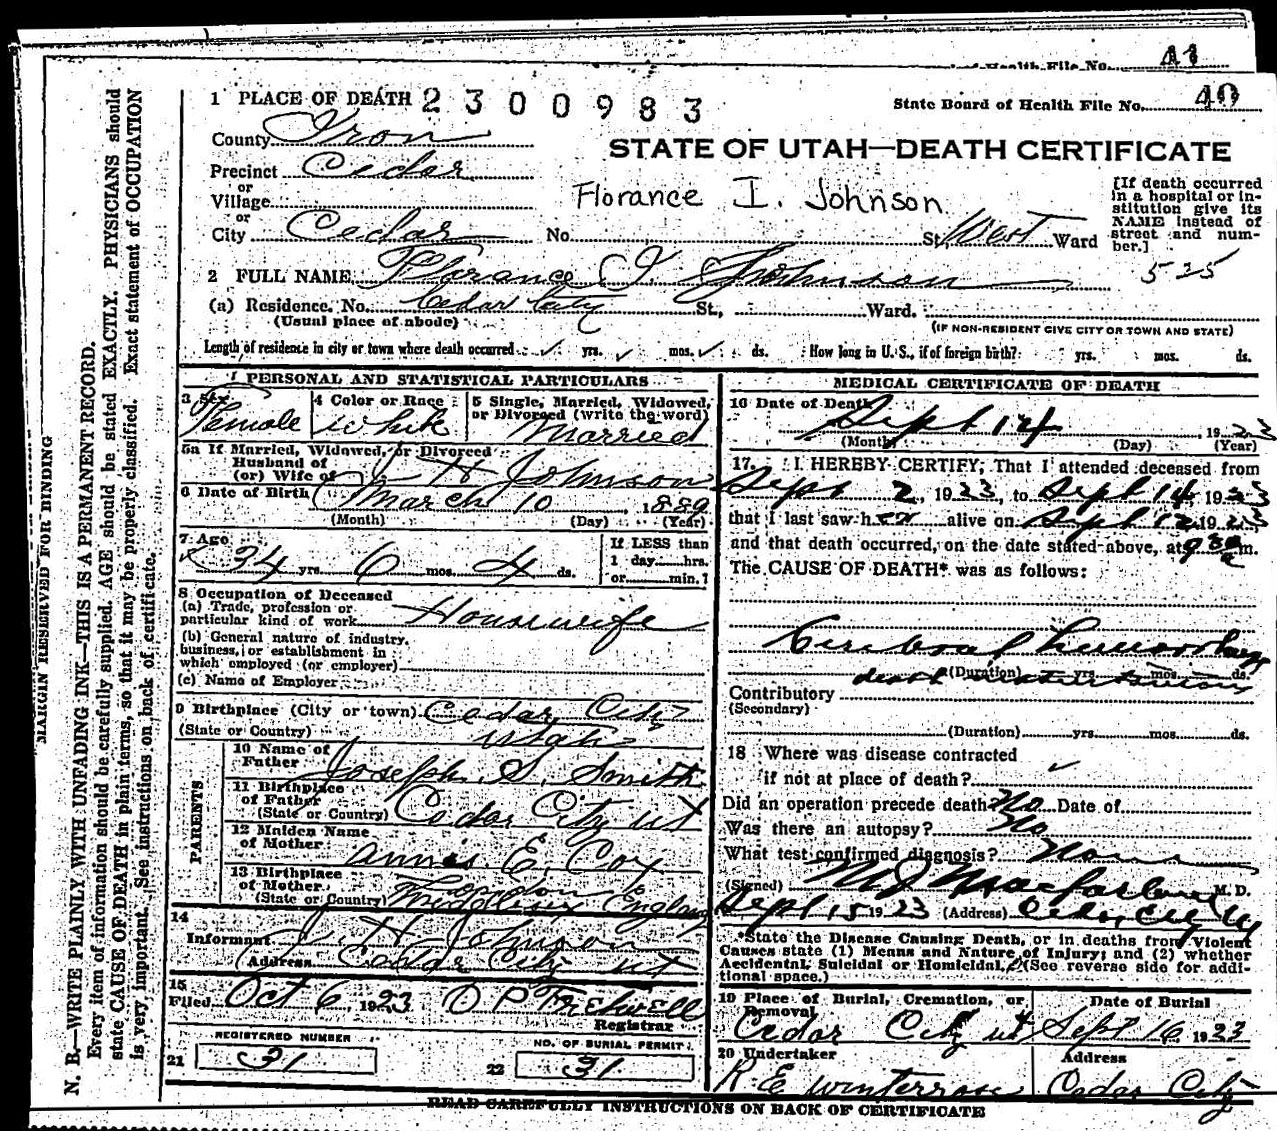 41
Health File No.
1 PLACE OF DEATH 2300983
State Board of Health File No. 40
County Iron
STATE OF UTAH—DEATH CERTIFICATE
Precinct Cedar
or
Village
Florance I. Johnson
[If death occurred in a hospital or institution give its NAME instead of street and number.]
or
City Cedar No. St. West Ward
525
2 FULL NAME Florance I. Johnson
(a) Residence. No. Cedar City St., Ward.
(Usual place of abode)
(IF NON-RESIDENT GIVE CITY OR TOWN AND STATE)
Length of residence in city or town where death occurred ✓ yrs. ✓ mos. ✓ ds. How long in U. S., if of foreign birth? yrs. mos. ds.
PERSONAL AND STATISTICAL PARTICULARS
3 Sex Female
4 Color or Race White
5 Single, Married, Widowed, or Divorced (write the word) Married
5a If Married, Widowed, or Divorced
Husband of
(or) Wife of J H Johnson
6 Date of Birth March 10 1889
(Month) (Day) (Year)
7 Age 34 yrs. 6 mos. 4 ds.
If LESS than
1 day hrs.
or min.?
8 Occupation of Deceased
(a) Trade, profession or
particular kind of work Housewife
(b) General nature of industry,
business, or establishment in
which employed (or employer)
(c) Name of Employer
9 Birthplace (City or town) Cedar City
(State or Country) Utah
PARENTS
10 Name of
Father Joseph S. Smith
11 Birthplace
of Father
(State or Country) Cedar City ut
12 Maiden Name
of Mother Annis E. Cox
13 Birthplace
of Mother
(State or Country) England
14
Informant J. H. Johnson
Address Cedar City ut
15
Filed Oct 6 1923 Registrar
REGISTERED NUMBER
21 31
NO. OF BURIAL PERMIT.
22 31
MEDICAL CERTIFICATE OF DEATH
16 Date of Death
Sept 14 1923
(Month) (Day) (Year)
17. I HEREBY CERTIFY, That I attended deceased from
Sept 2, 1923, to Sept 14 1923
that I last saw her alive on Sept 12 1923
and that death occurred, on the date stated above, at 9 30 a m.
The CAUSE OF DEATH* was as follows:
Cerebral hemorrhage
(Duration) yrs. mos. ds.
Contributory
(Secondary)
(Duration) yrs. mos. ds.
18 Where was disease contracted
if not at place of death? ✓
Did an operation precede death No Date of
Was there an autopsy? No
What test confirmed diagnosis? None
(Signed) M J Macfarlane M. D.
Sept 15 1923 (Address) Cedar City Ut
*State the Disease Causing Death, or in deaths from Violent
Causes state (1) Means and Nature of Injury; and (2) whether
Accidental, Suicidal or Homicidal. (See reverse side for addi-
tional space.)
19 Place of Burial, Cremation, or
Removal
Cedar City ut
Date of Burial
Sept 16 1923
20 Undertaker
R E Winterrose
Address
Cedar City
READ CAREFULLY INSTRUCTIONS ON BACK OF CERTIFICATE
MARGIN RESERVED FOR BINDING
N. B.—WRITE PLAINLY WITH UNFADING INK—THIS IS A PERMANENT RECORD.
Every item of information should be carefully supplied. AGE should be stated EXACTLY. PHYSICIANS should
state CAUSE OF DEATH in plain terms, so that it may be properly classified. Exact statement of OCCUPATION
is very important. See instructions on back of certificate.